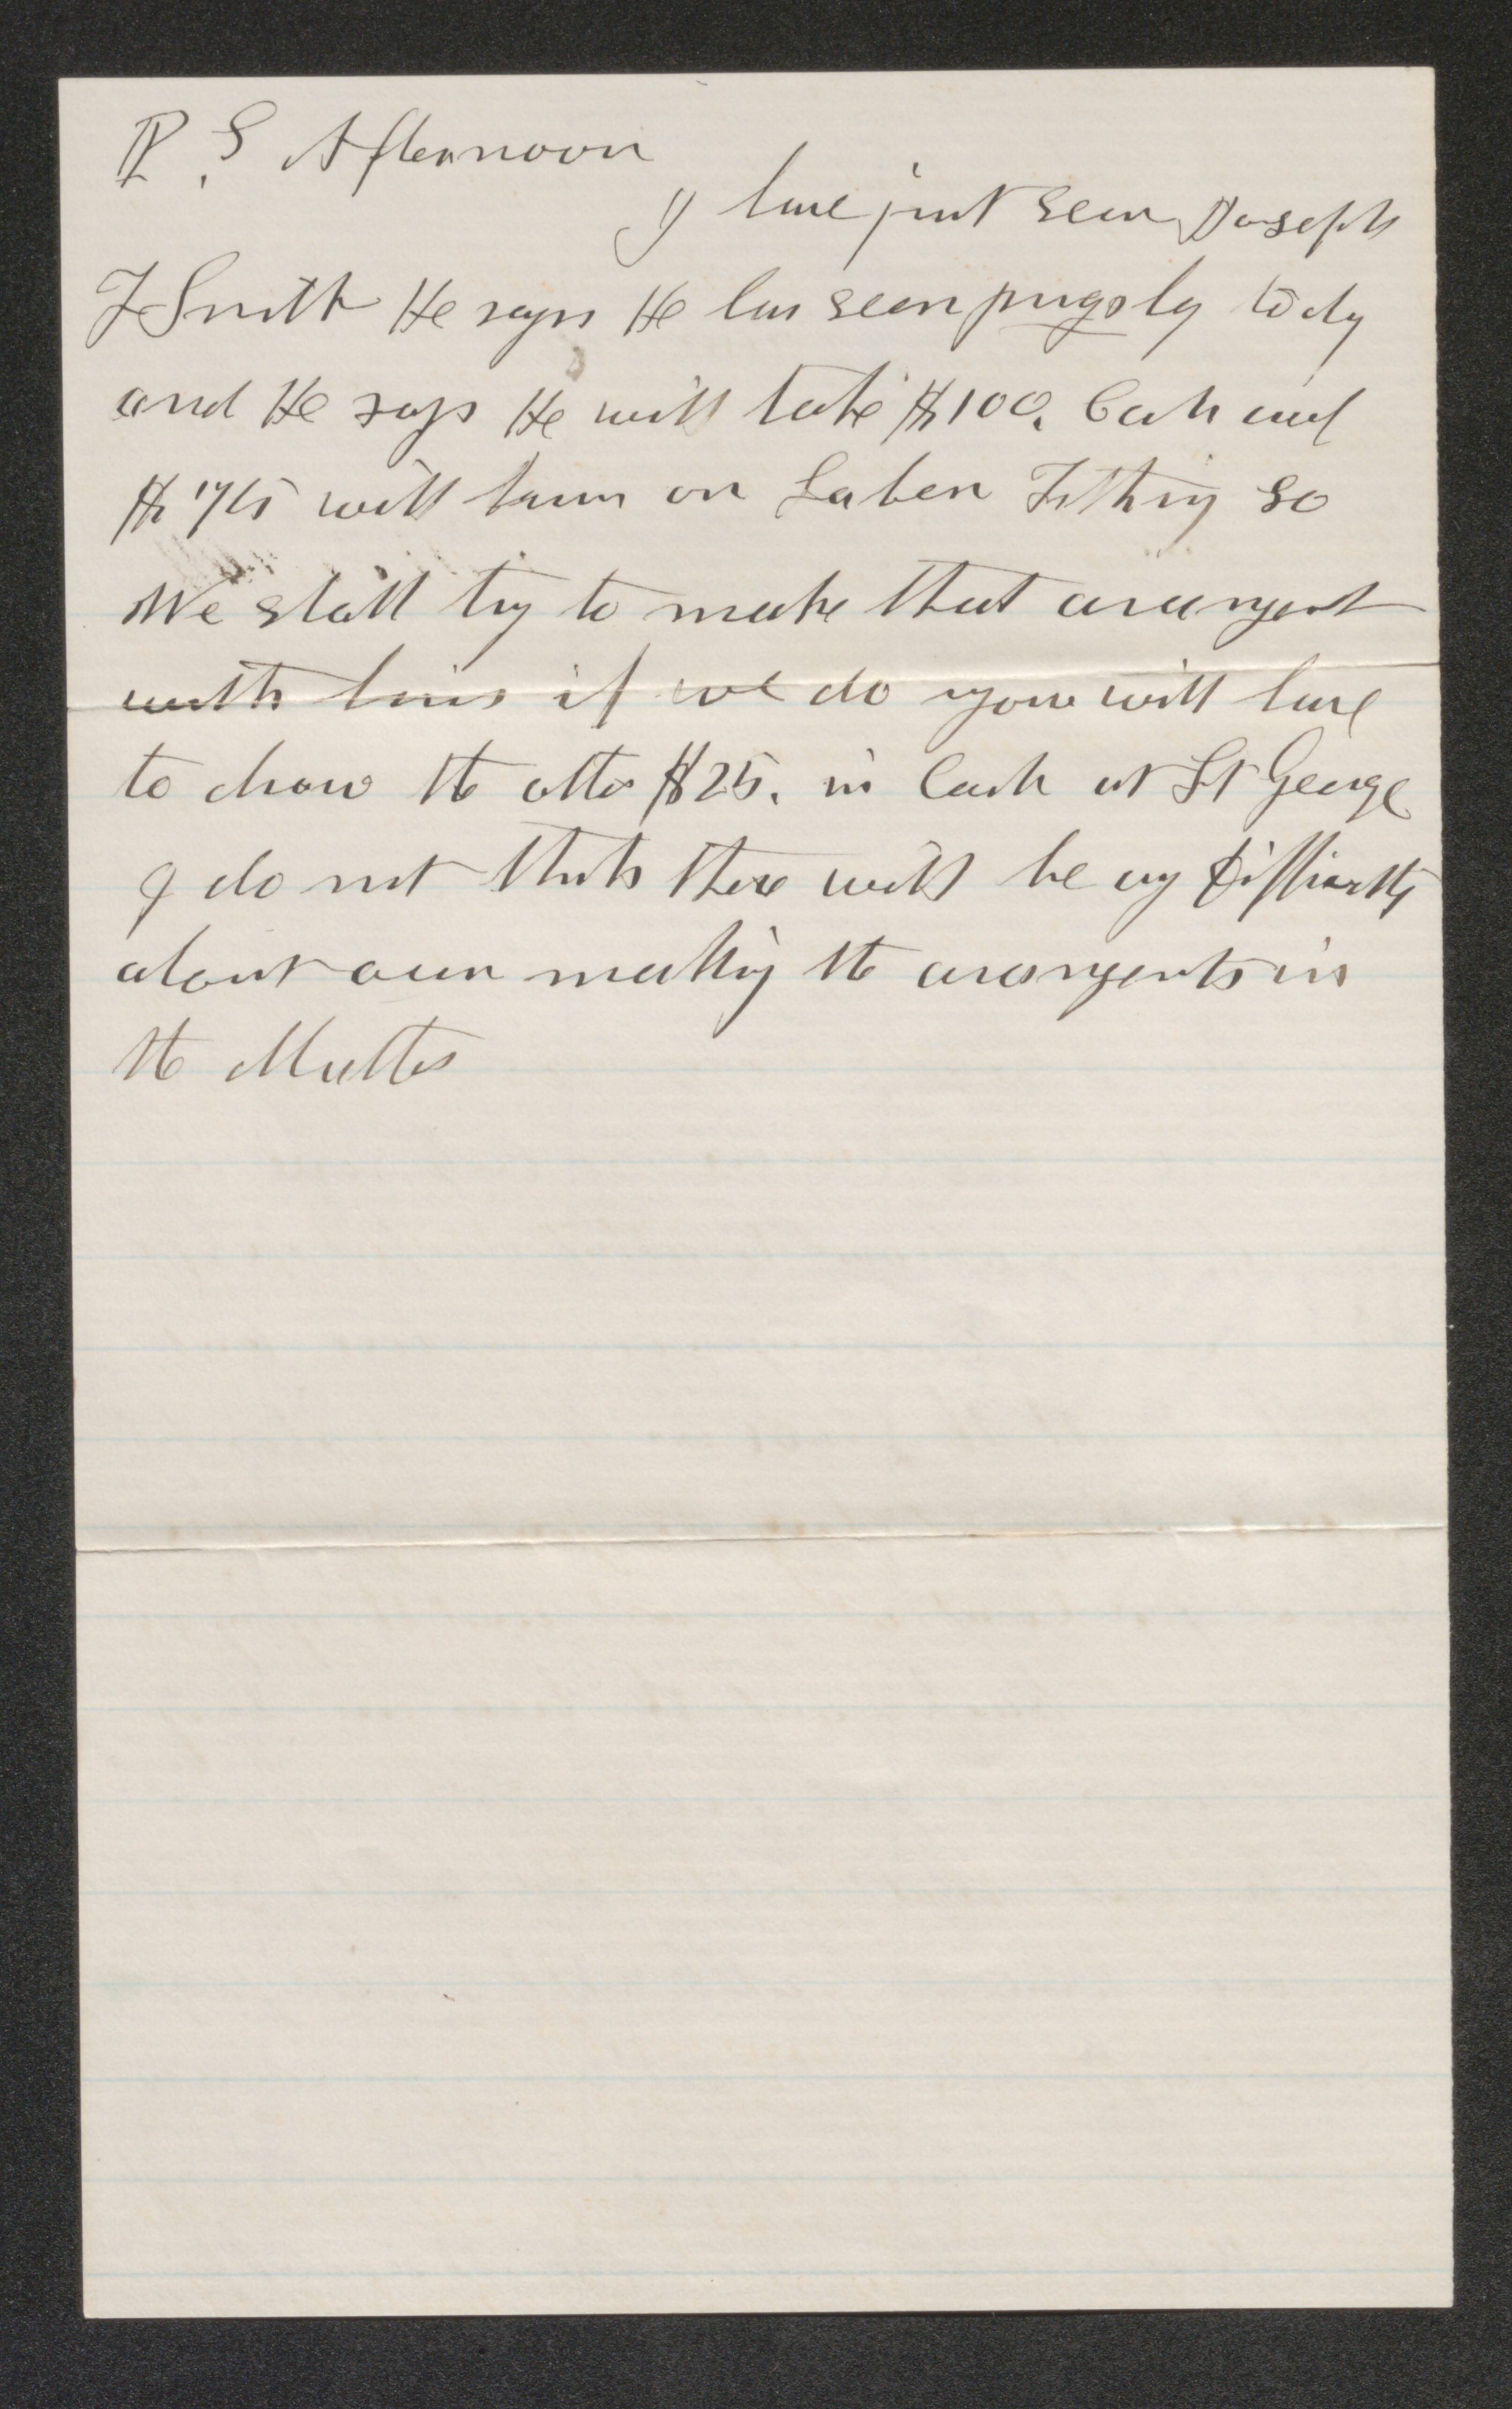 P. S Afternoon
I have just seen Joseph
F Smith He says He has seen pugsly to dy
and He says He will take $100. Cash and
$75 will turn on Labor Tithing so
We shall try to make that arangent
with him if we do you will have
to draw the other $25. in Cash at St George
I do not think there will be any Difficulty
about our making the arangents in
the Matter